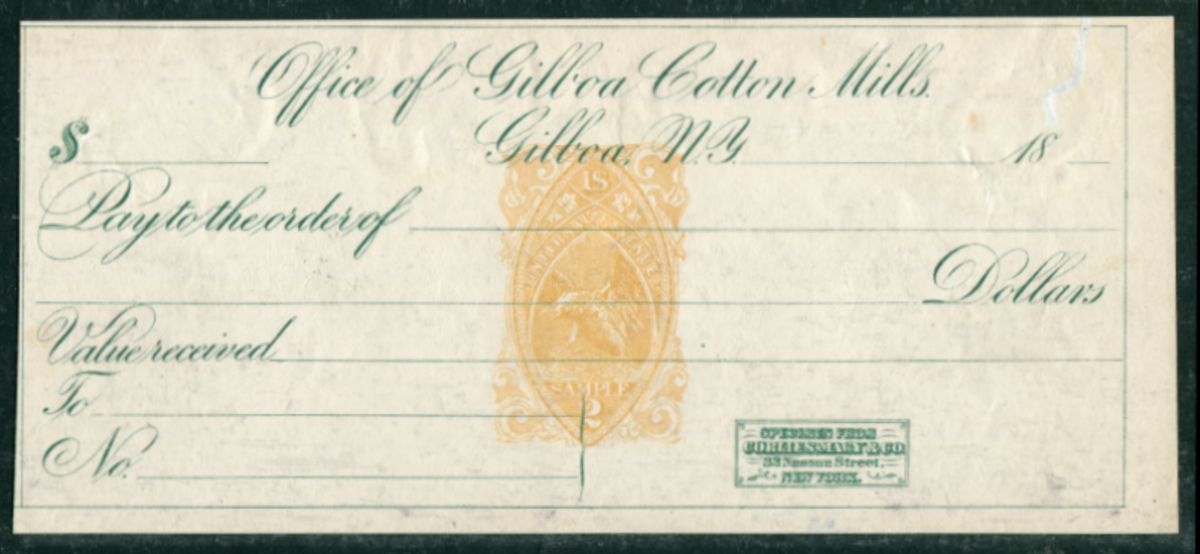 Office of Gilboa Cotton Mills.
$ Gilboa, N.Y. 18
Pay to the order of
Dollars
Value received
To
No.
SAMPLE
2
SPECIMEN FROM
33 Nassau Street,
NEW YORK.